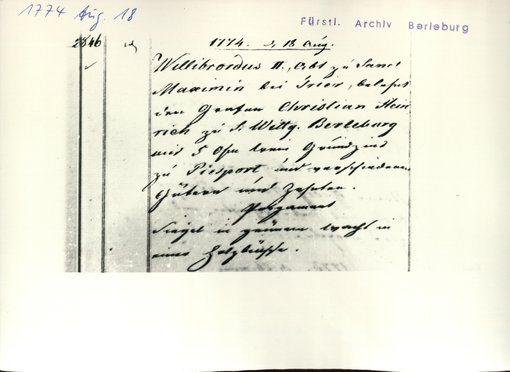 1774 Aug. 18
Fürstl. Archiv Berleburg
2646
1774. d. 18 Aug.
Willibrordus II., Abt zu Sanct
Maximin bei Trier, belehnt
den Grafen Christian Hein
rich zu S. Wittg. Berleburg
mit 5 Ohm Grundzins
zu Piesport und verschiedenen
Gütern und Zehnten.
Pergament
Siegel in grünem Wachs in
einer Holzbüchse.